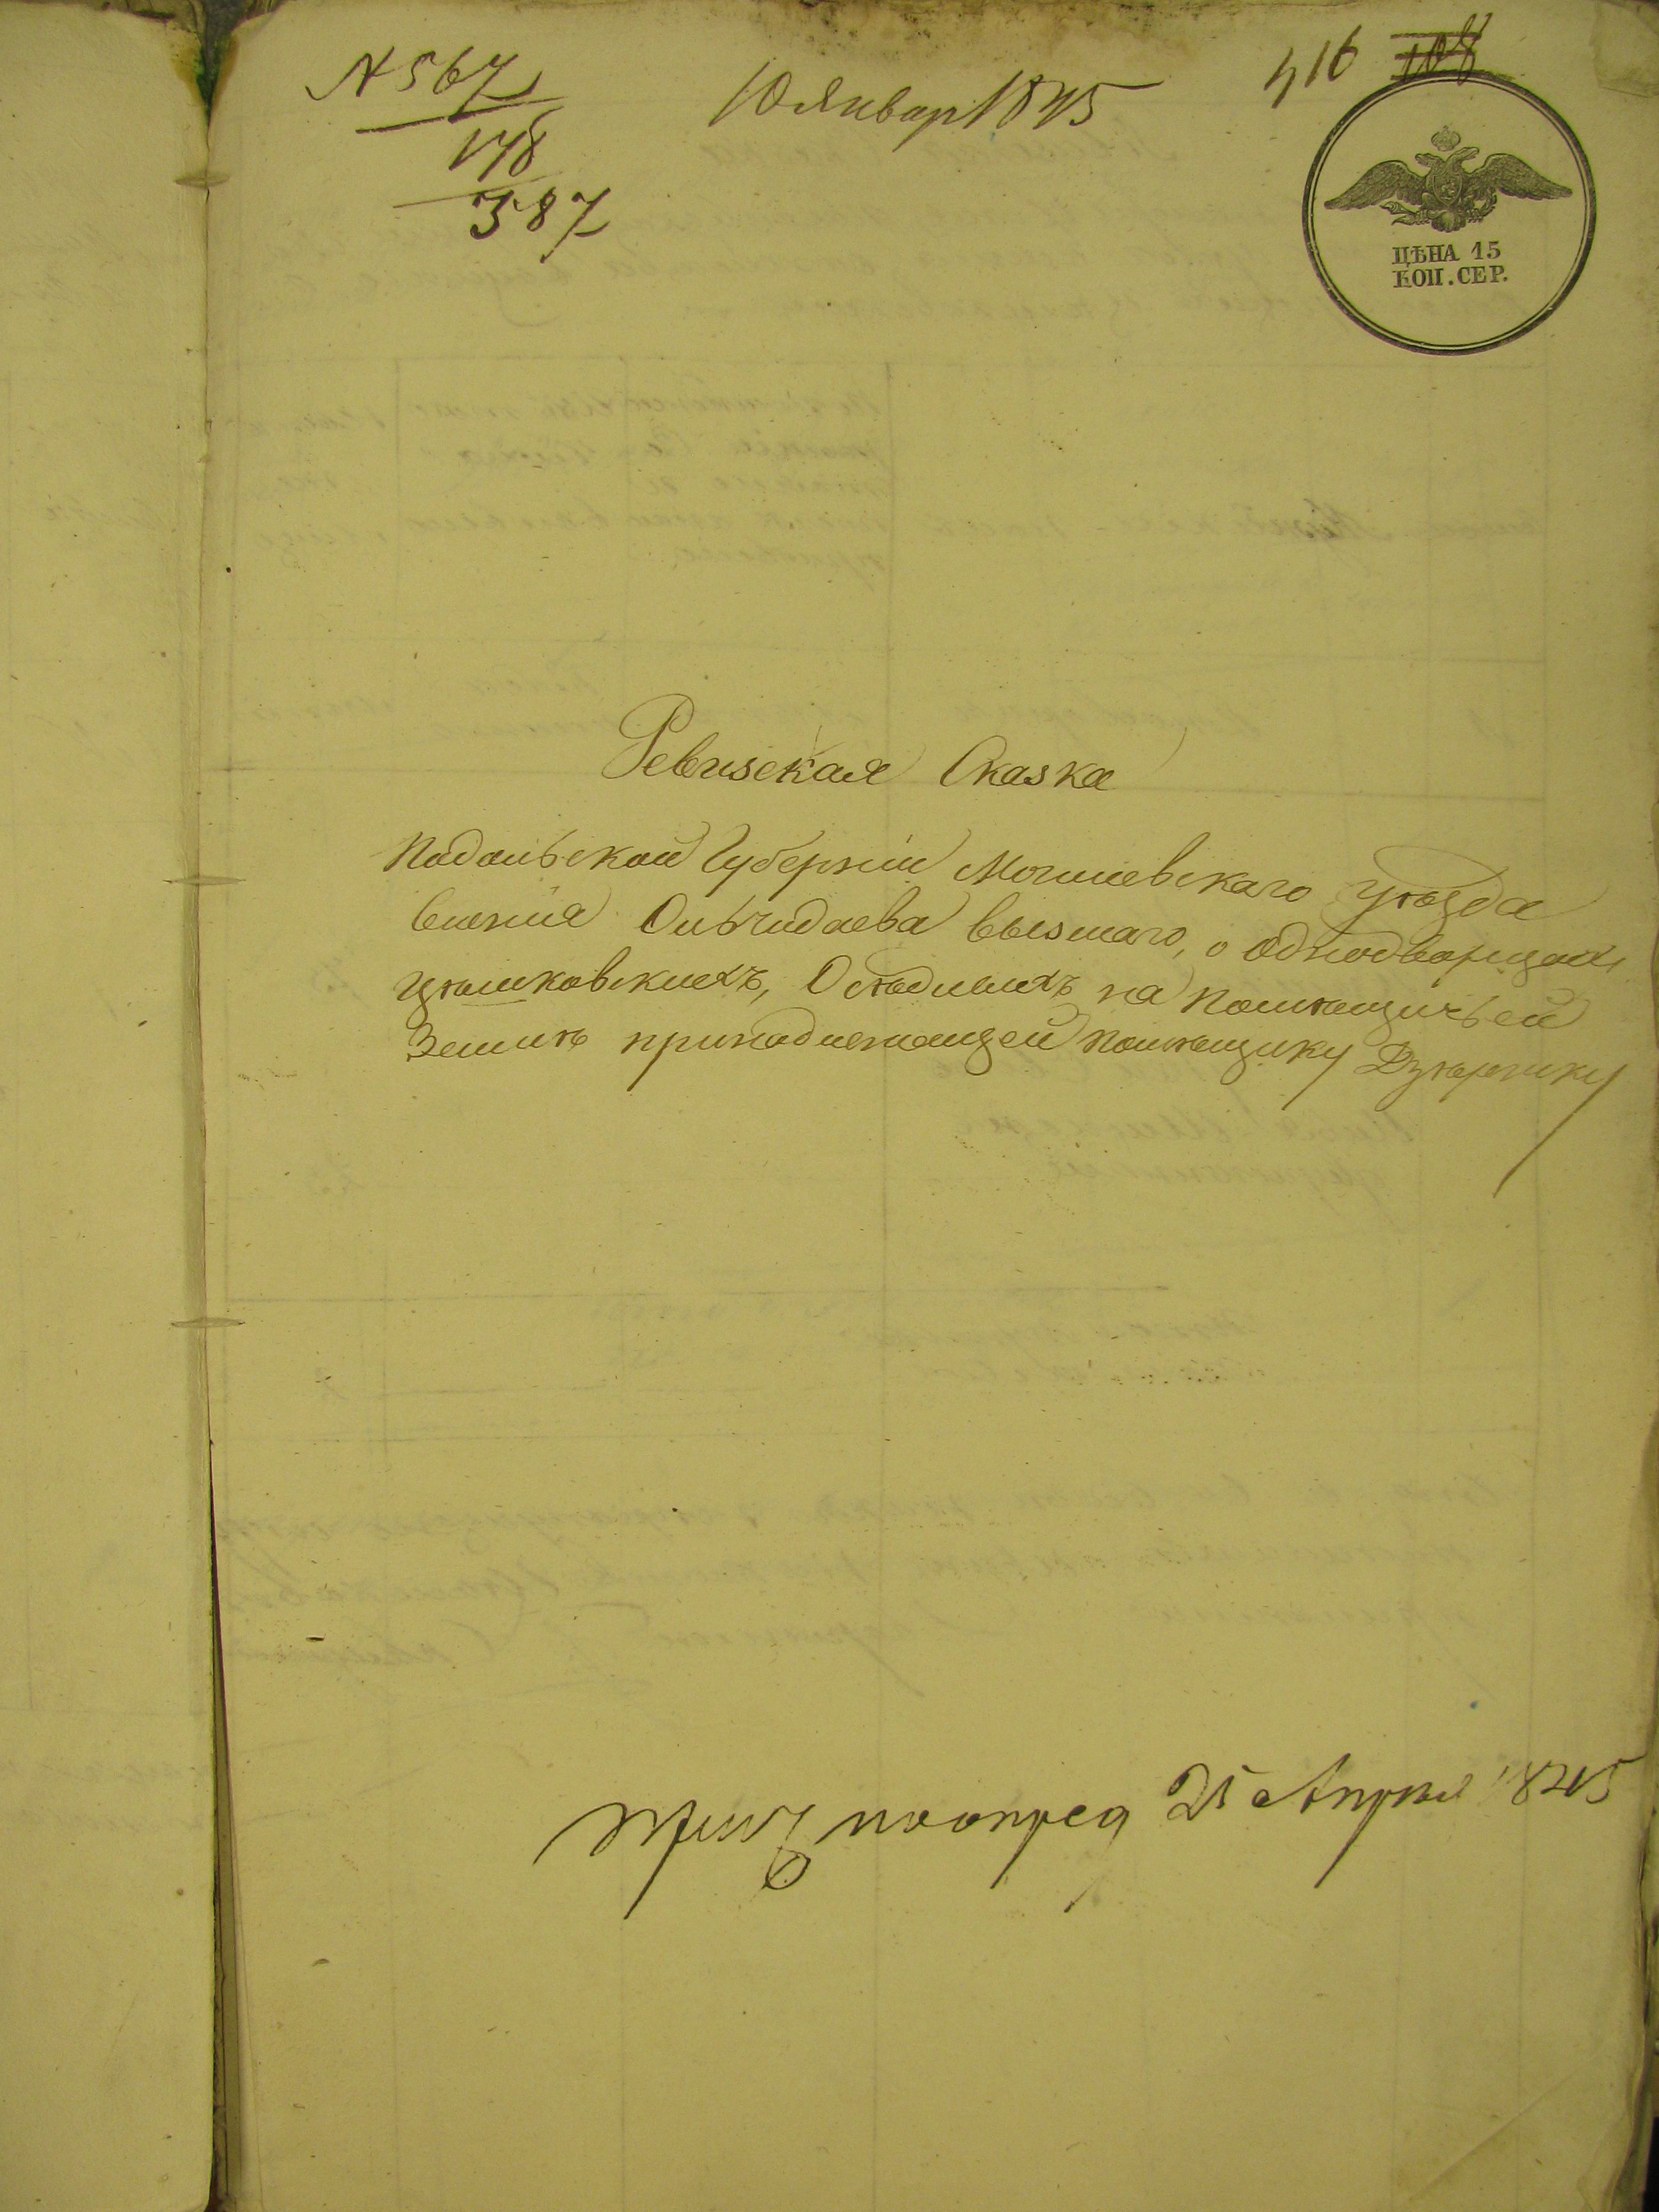 N 567
178
387
10 Январ 1845
416 108
ЦѢНА 15
КОП. СЕР.
Ревизская Сказка
Подольской Губерніи Могилевскаго уѣзда
Селенія Ольчидаева вызшаго, о однодворцахъ
Цѣшковскихъ, Осѣдлыхъ на помѣщичьей
Землѣ принадлежащей помѣщику Дзѣржку
25 Апрѣля 1845